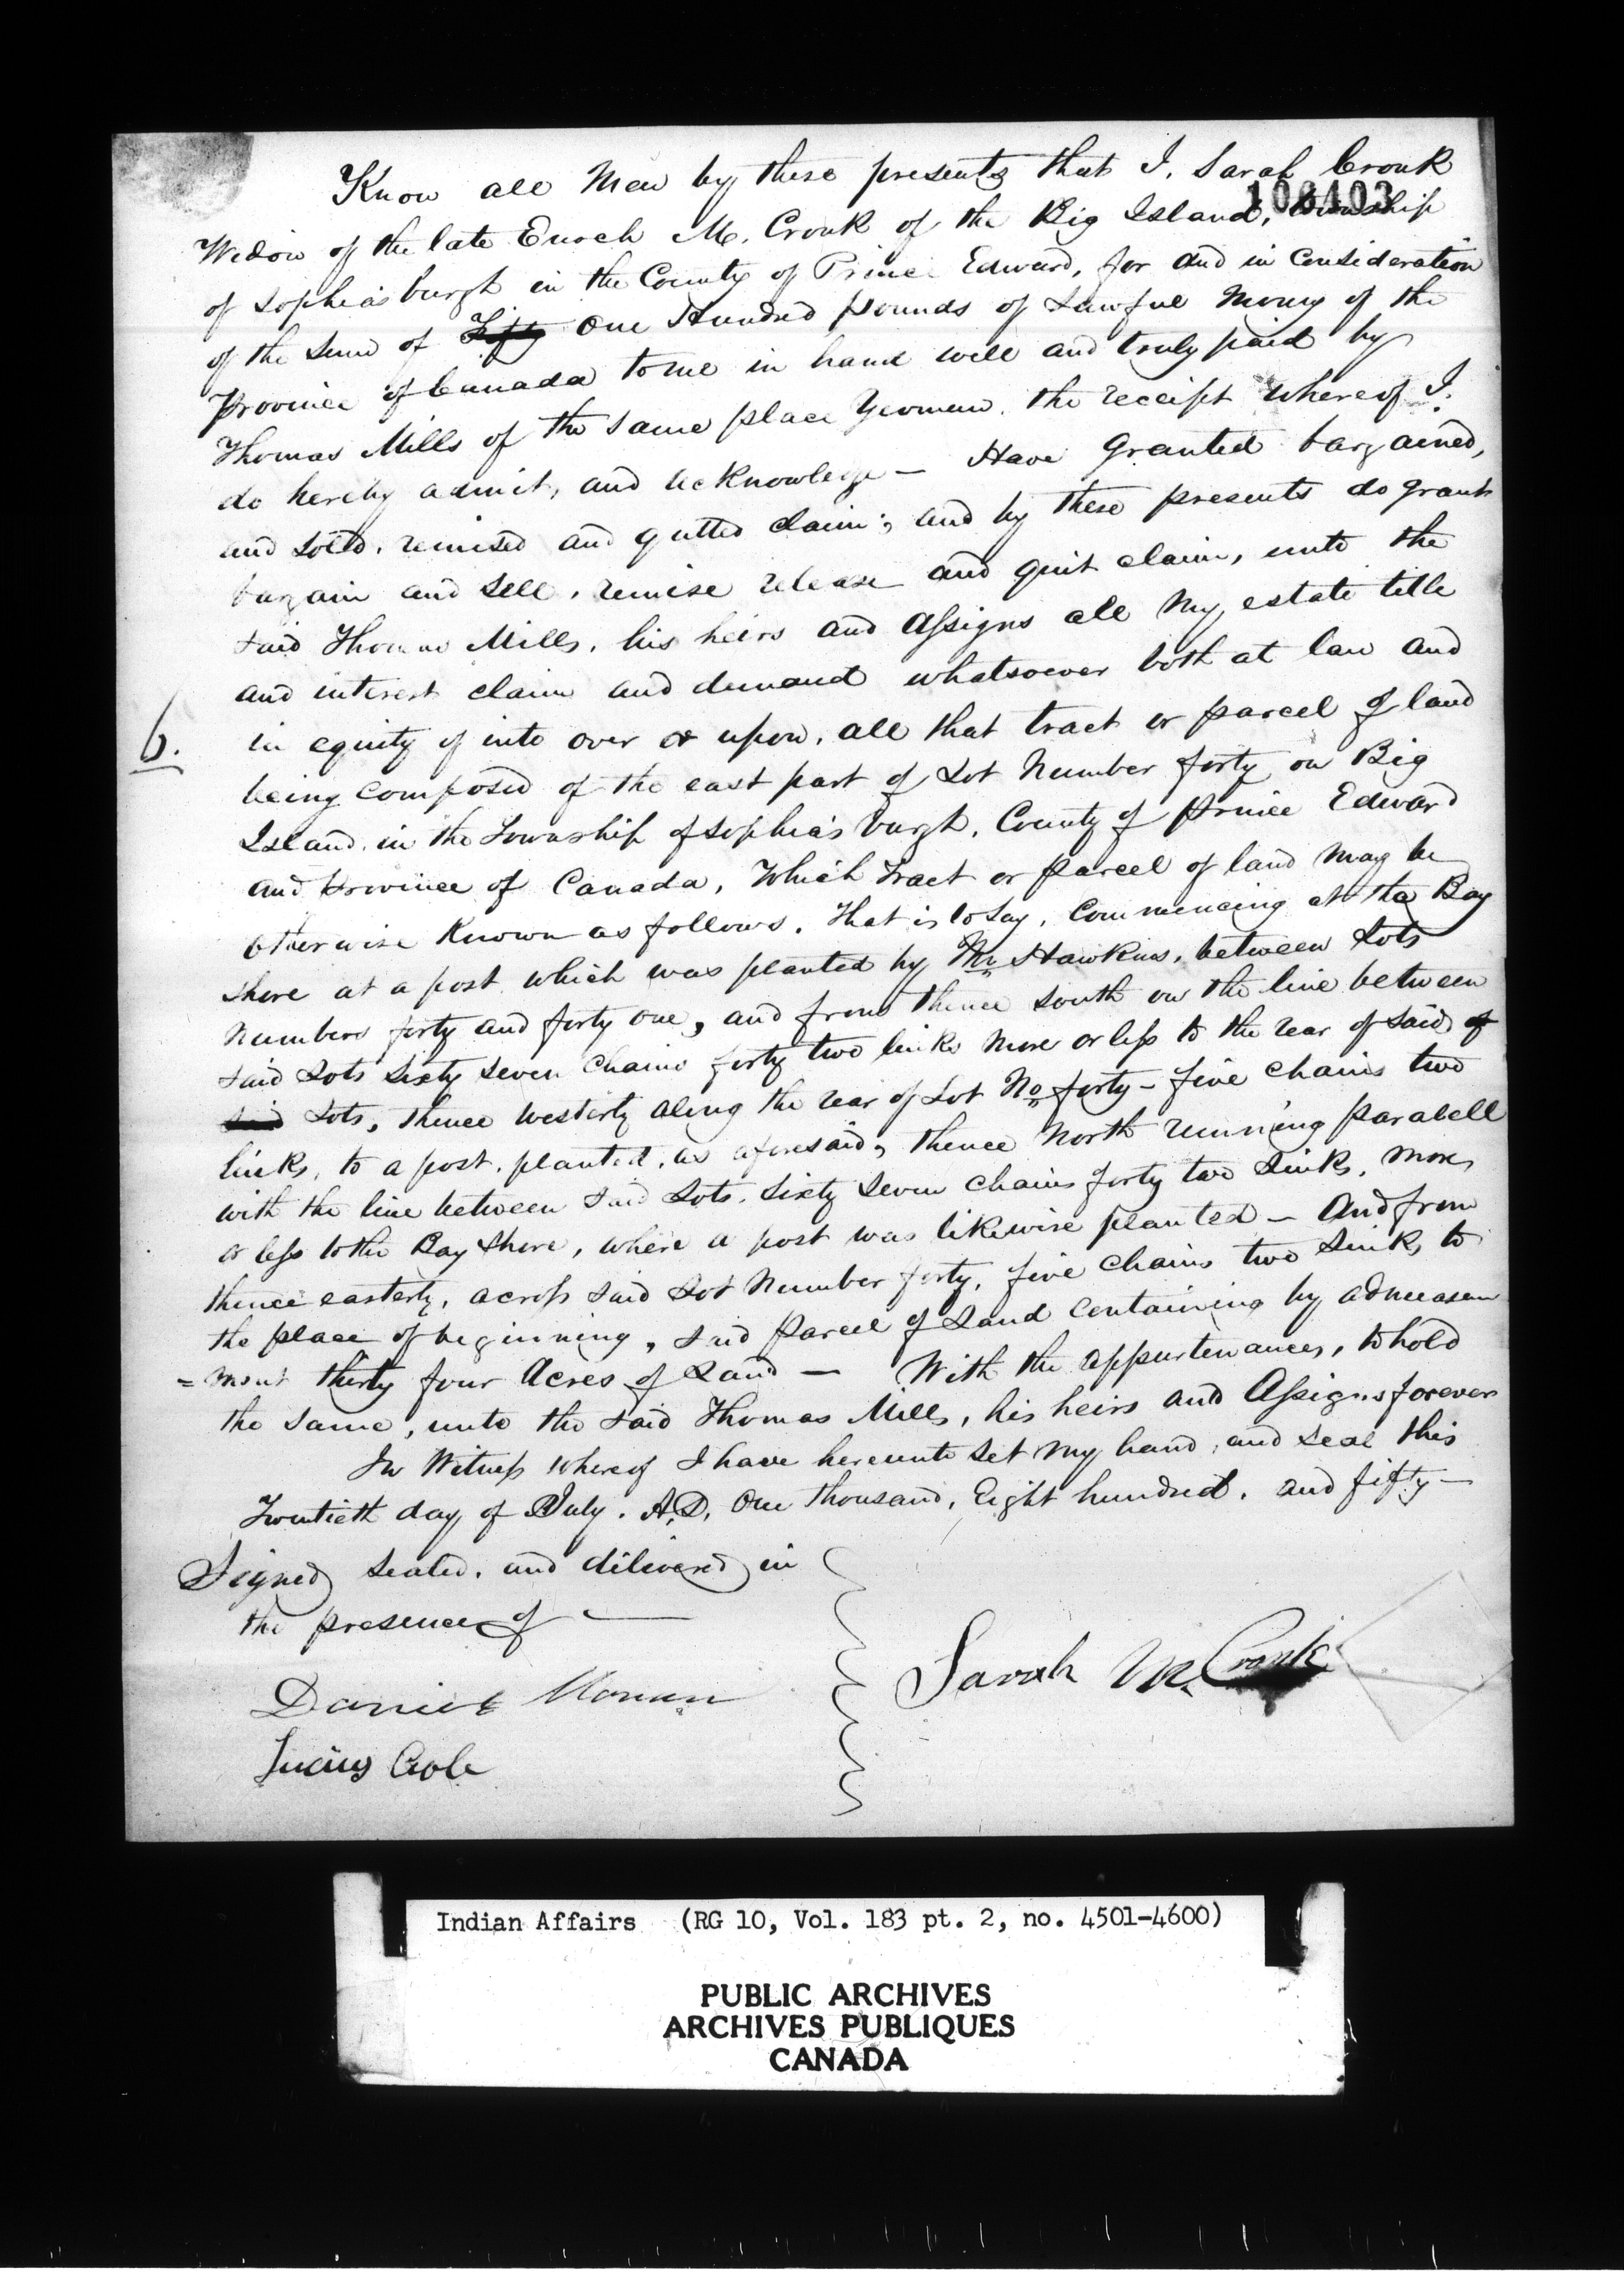 Know all Men by these presents that I, Sarah Cronk
108403
Widow of the late Enoch M. Cronk of the Big Island, township
of Sophiasburgh in the County of Prince Edward, for and in Consideration
of the Sum of Fifty One Hundred pounds of Lawful Money of the
Province of Canada to me in hand well and truly paid by
Thomas Mills of the same place Yeoman. the receipt whereof I.
do hereby admit, and acknowledge — Have granted bargained,
and sold, remised and quitted claim; and by these presents do grant
bargain and sell, remise release and quit claim, unto the
said Thomas Mills, his heirs and assigns all my estate title
and interest claim and demand whatsoever both at law and
6.
in equity of into over or upon, all that tract or parcel of land
being composed of the east part of Lot Number forty on Big
Island, in the Township of Sophiasburgh, County of Prince Edward
and Province of Canada, Which Tract or parcel of land may be
otherwise Known as follows. That is to say, Commencing at the Bay
shore at a post which was planted by Mr. Hawkins, between Lots
numbers forty and forty one, and from thence south on the line between
said Lots sixty seven chains forty two links more or less to the rear of said of
said Lots, thence westerly along the rear of Lot No. forty – five chains two
links, to a post, planted, as aforesaid, thence North running paralell
with the line between said Lots. sixty seven chains forty two Links, more
or less to the Bay shore, where a post was likewise planted — And from
thence easterly, across said Lot Number forty, five chains two Links to
the place of beginning, said parcel of Land containing by admeasure
= ment thirty four Acres of Land — With the appurtenances, to hold
the same, unto the said Thomas Mills, his heirs and Assigns forever
In Witness whereof I have hereunto set my hand, and seal this
Twentieth day of July. A.D. One thousand, Eight hundred, and fifty —
Signed sealed, and delivered in
the presence of —
Sarah M. Cronk
Daniel
Lucius Cole
Indian Affairs (RG 10, Vol. 183 pt. 2, no. 4501-4600)
PUBLIC ARCHIVES
ARCHIVES PUBLIQUES
CANADA